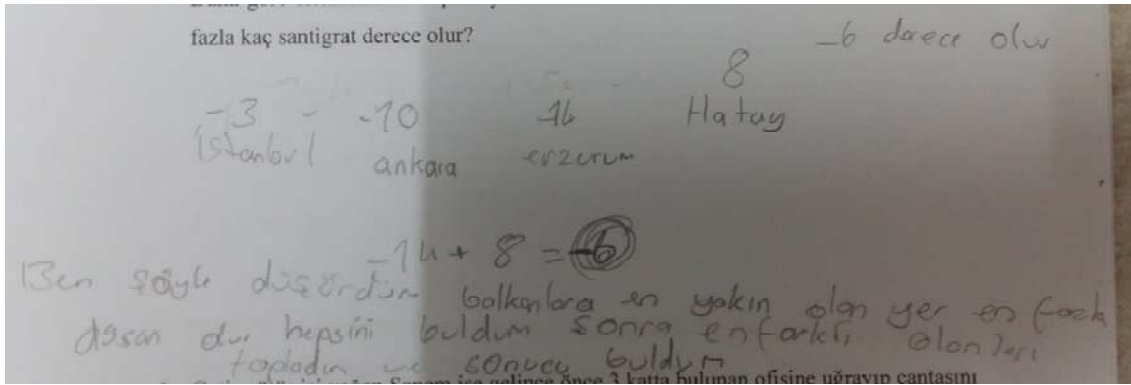 fazla kaç santigrat derece olur?
-6 derece olur
-3 - -10 -14 8
istanbul ankara erzurum Hatay
-14 + 8 = -6
Ben şöyle düşündüm balkanlara en yakın olan yer en
dur hepsini buldum sonra en farklı olanları
topladım ve sonucu buldum
Sanem ise gelince önce 3 katta bulunan ofisine uğrayıp çantasını